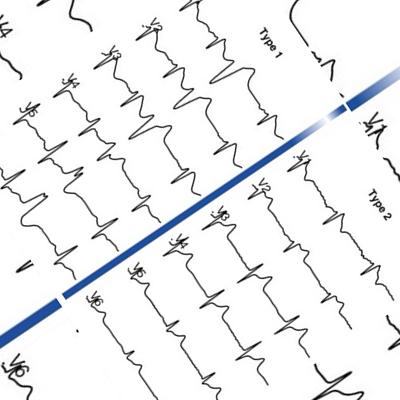 V4
V5
V4
V3
V2
Type 1
V1
V1
V2
V3
V4
V5
V6
Type 2
V6